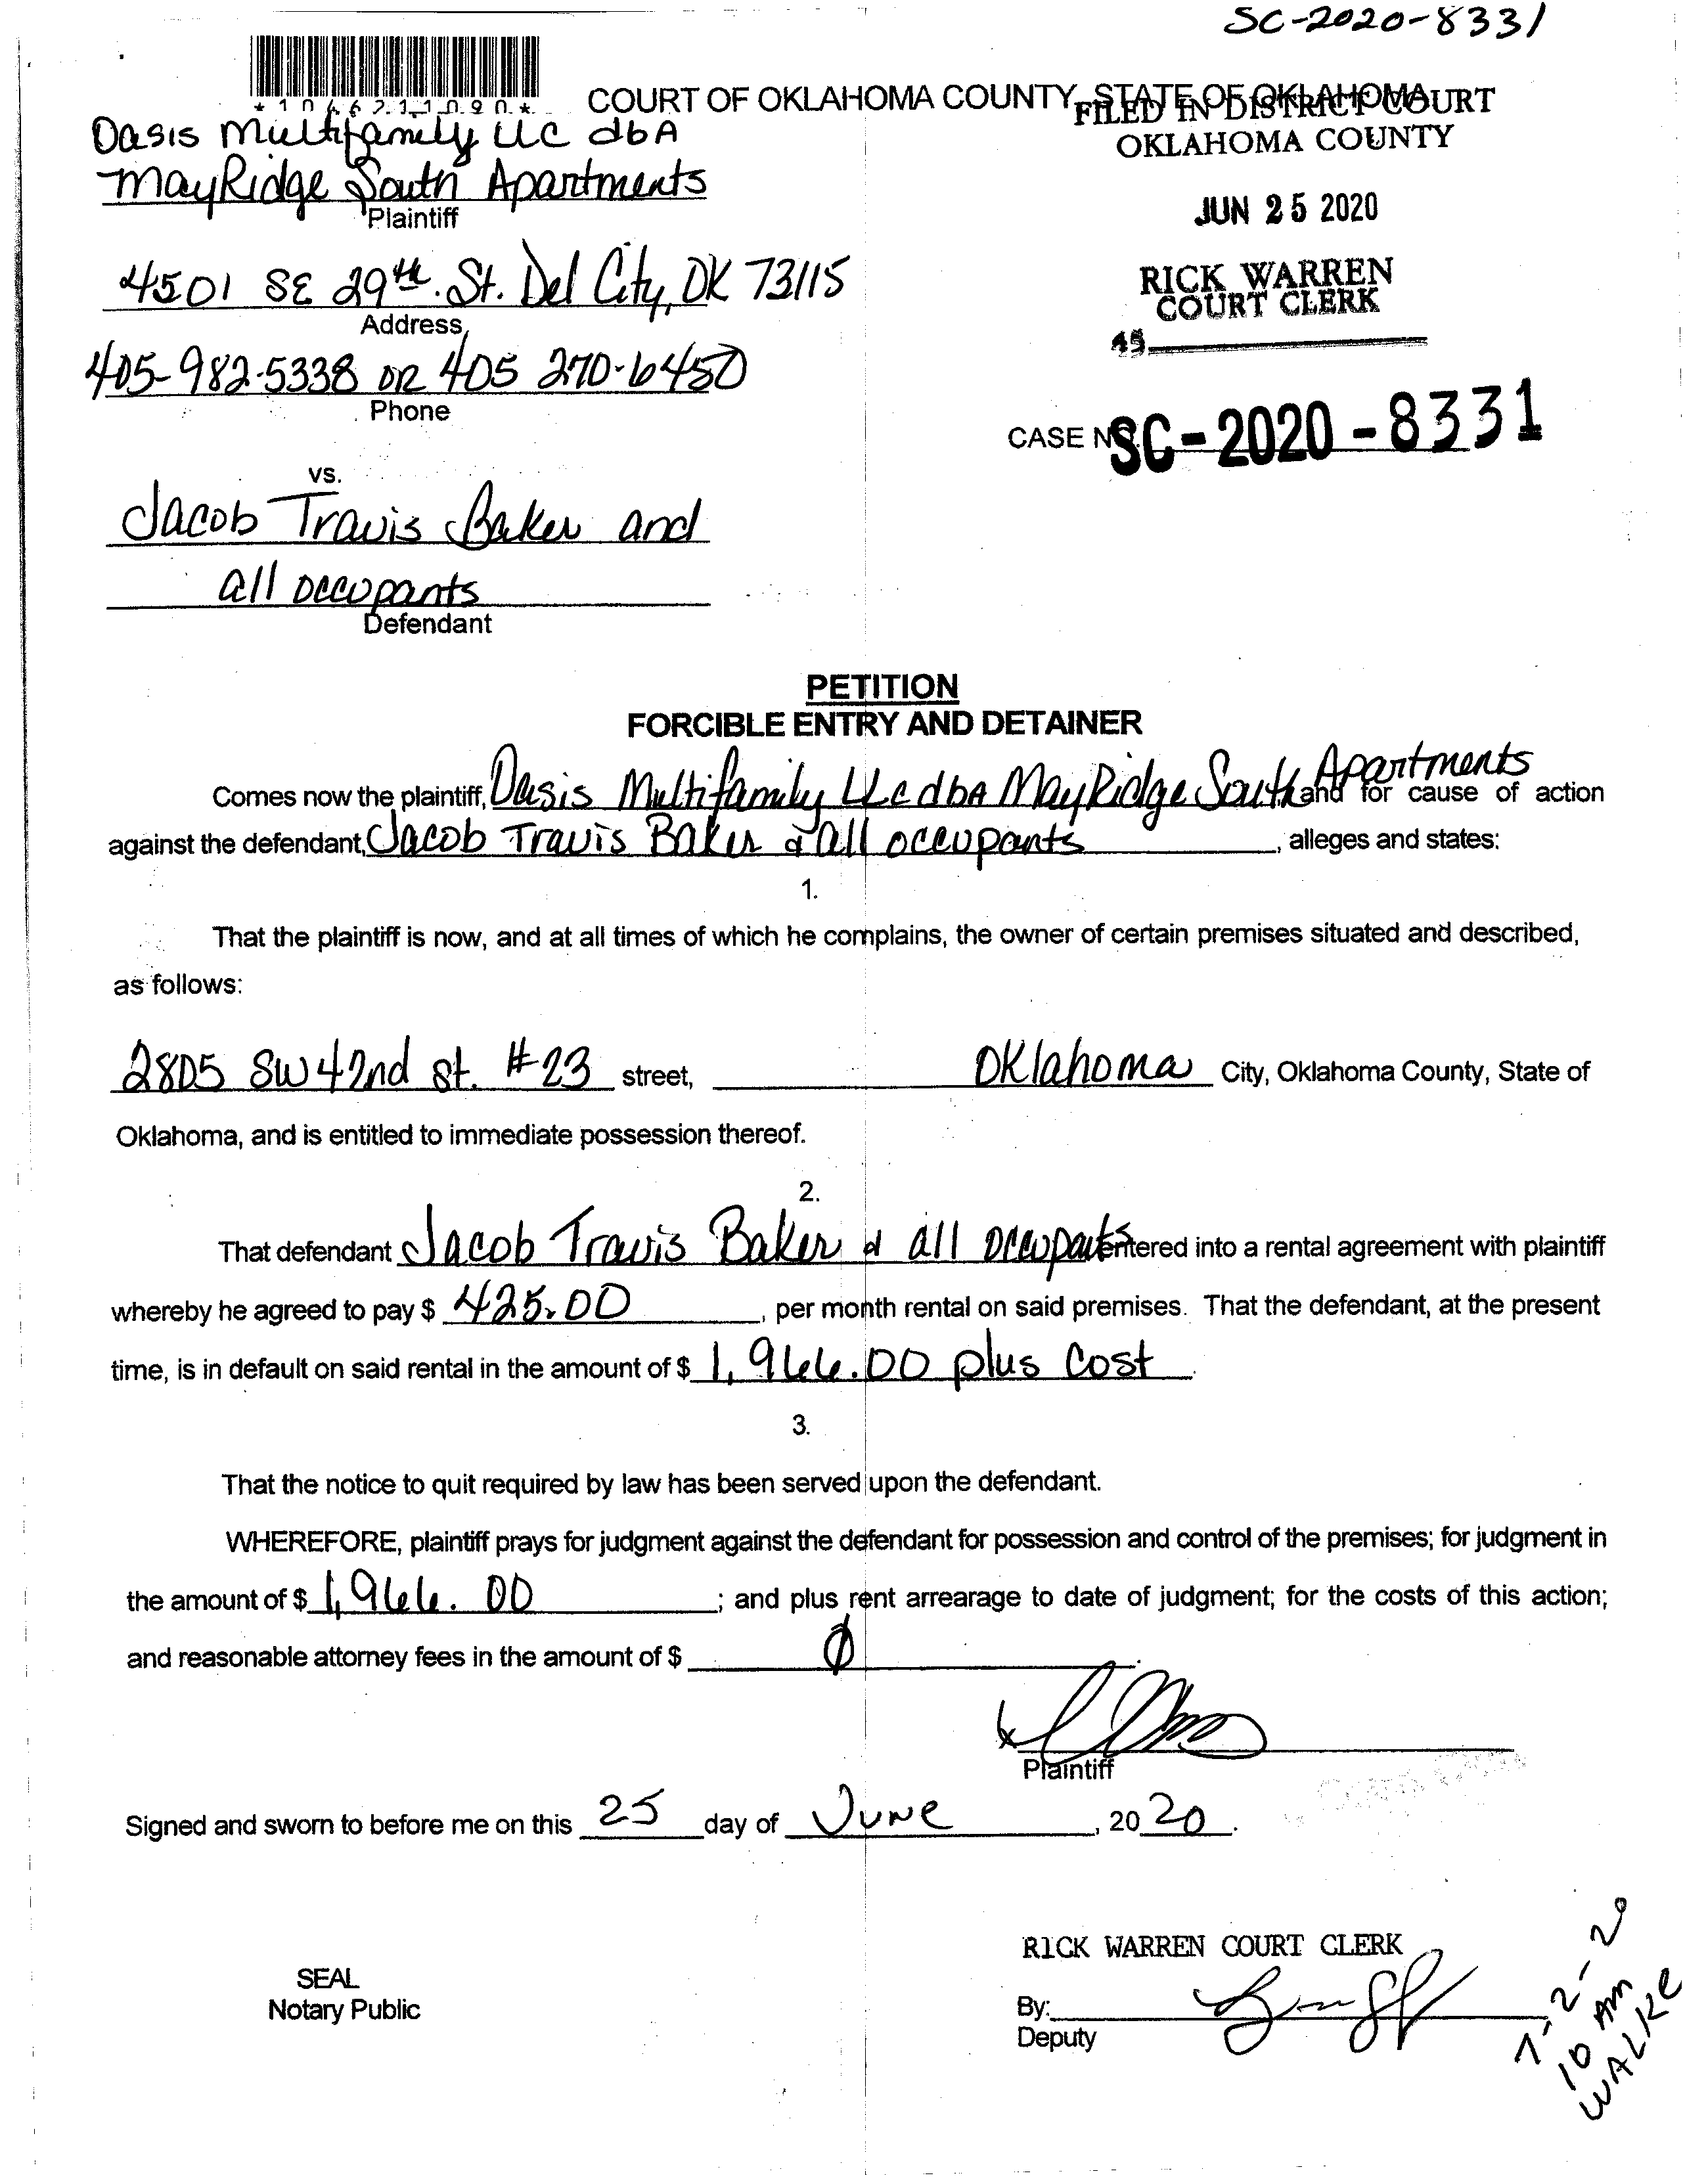 SC-2020-8331
*1046211090*
COURT OF OKLAHOMA COUNTY, STATE OF OKLAHOMA
FILED IN DISTRICT COURT
OKLAHOMA COUNTY
Oasis Multifamily LLC dbA
MayRidge South Apartments
Plaintiff
JUN 25 2020
4501 SE 29th. St. Del City, OK 73115
Address
RICK WARREN
COURT CLERK
45
405-982-5338 OR 405 270-6450
Phone
CASE NO. SC-2020-8331
vs.
Jacob Travis Baker and
all occupants
Defendant
PETITION
FORCIBLE ENTRY AND DETAINER
Comes now the plaintiff, Oasis Multifamily LLc dbA MayRidge South Apartments and for cause of action
against the defendant, Jacob Travis Baker & all occupants, alleges and states:
1.
That the plaintiff is now, and at all times of which he complains, the owner of certain premises situated and described,
as follows:
2805 SW 42nd st. #23 street, Oklahoma City, Oklahoma County, State of
Oklahoma, and is entitled to immediate possession thereof.
2.
That defendant Jacob Travis Baker & all occupants entered into a rental agreement with plaintiff
whereby he agreed to pay $ 425.00, per month rental on said premises. That the defendant, at the present
time, is in default on said rental in the amount of $ 1,966.00 plus Cost.
3.
That the notice to quit required by law has been served upon the defendant.
WHEREFORE, plaintiff prays for judgment against the defendant for possession and control of the premises; for judgment in
the amount of $ 1,966.00; and plus rent arrearage to date of judgment; for the costs of this action;
and reasonable attorney fees in the amount of $ Ø.
x
Plaintiff
Signed and sworn to before me on this 25 day of June, 2020.
RICK WARREN COURT CLERK
SEAL
Notary Public
By:
Deputy
7-2-20
10 AM
WALKE